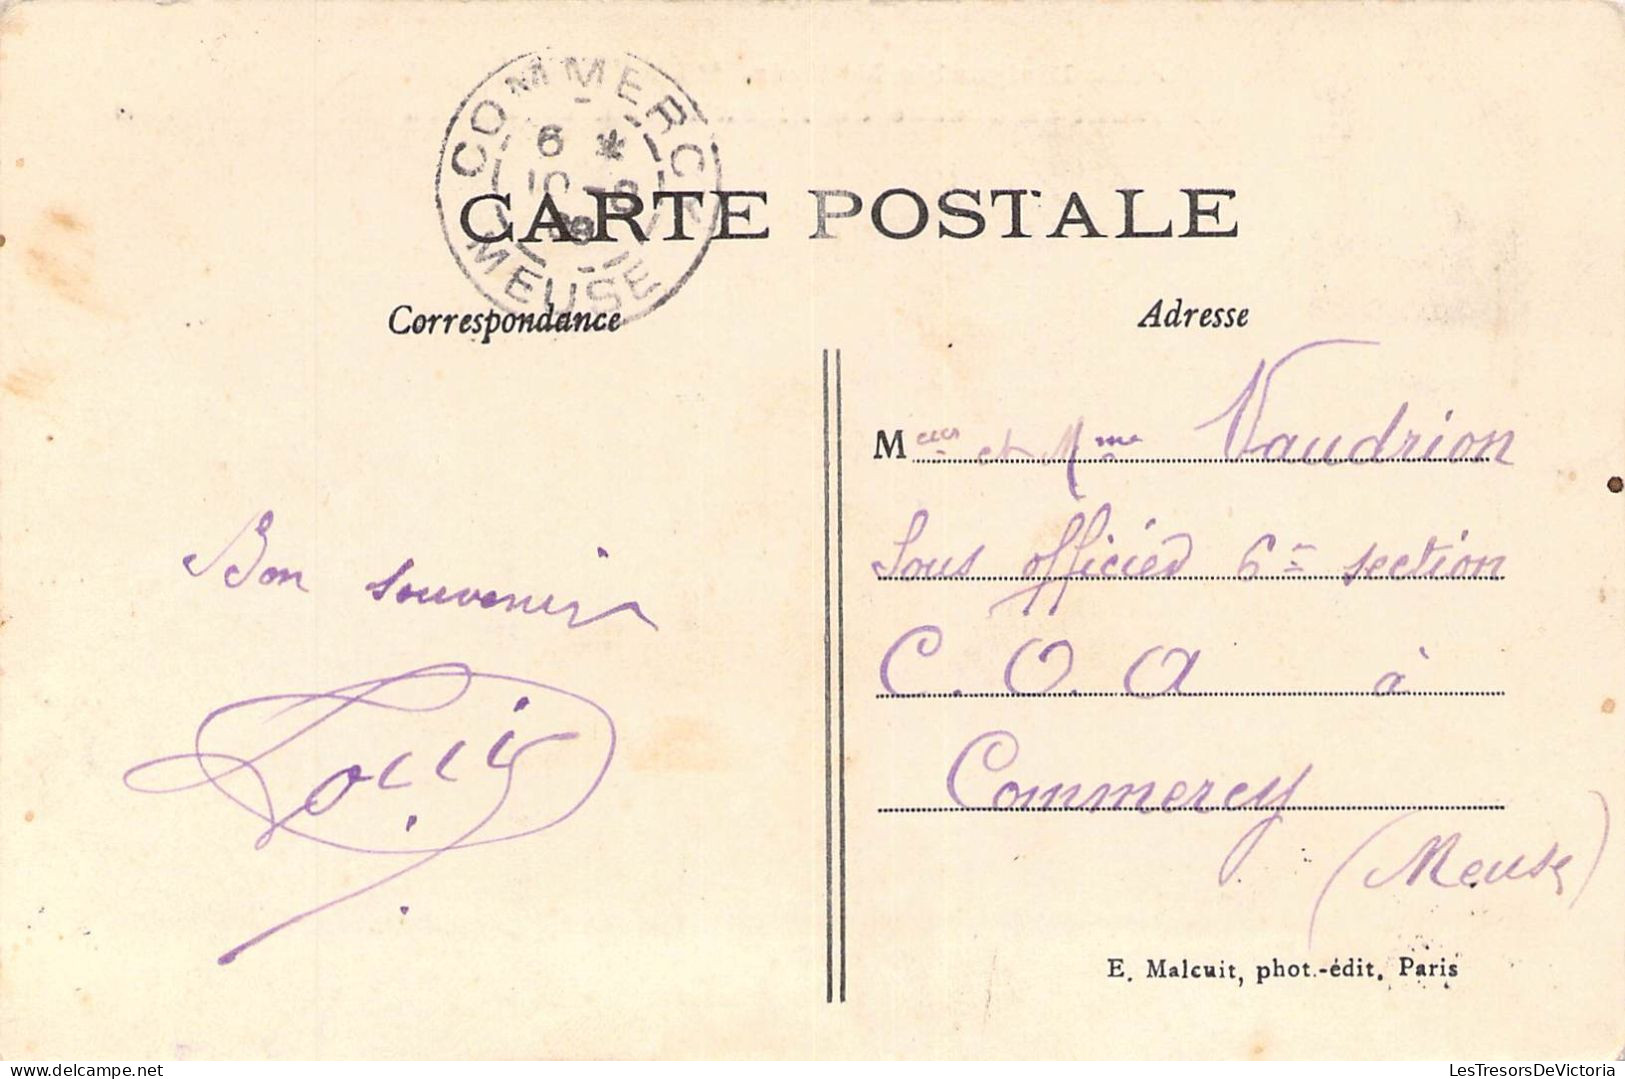 COMMERCY
6 *
10-8
09
MEUSE
CARTE POSTALE
Correspondance
Adresse
Bon souvenir
Louis
M et Mme Vaudrion
Sous officier 6e section
C. O. A à
Commercy
(Meuse)
E. Malcuit, phot.-édit. Paris
LesTresorsDeVictoria